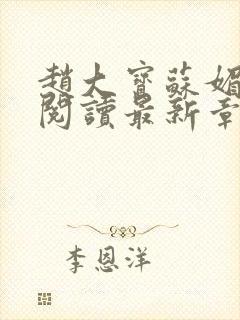 趙大寶蘇媚
閱讀最新章
李恩洋